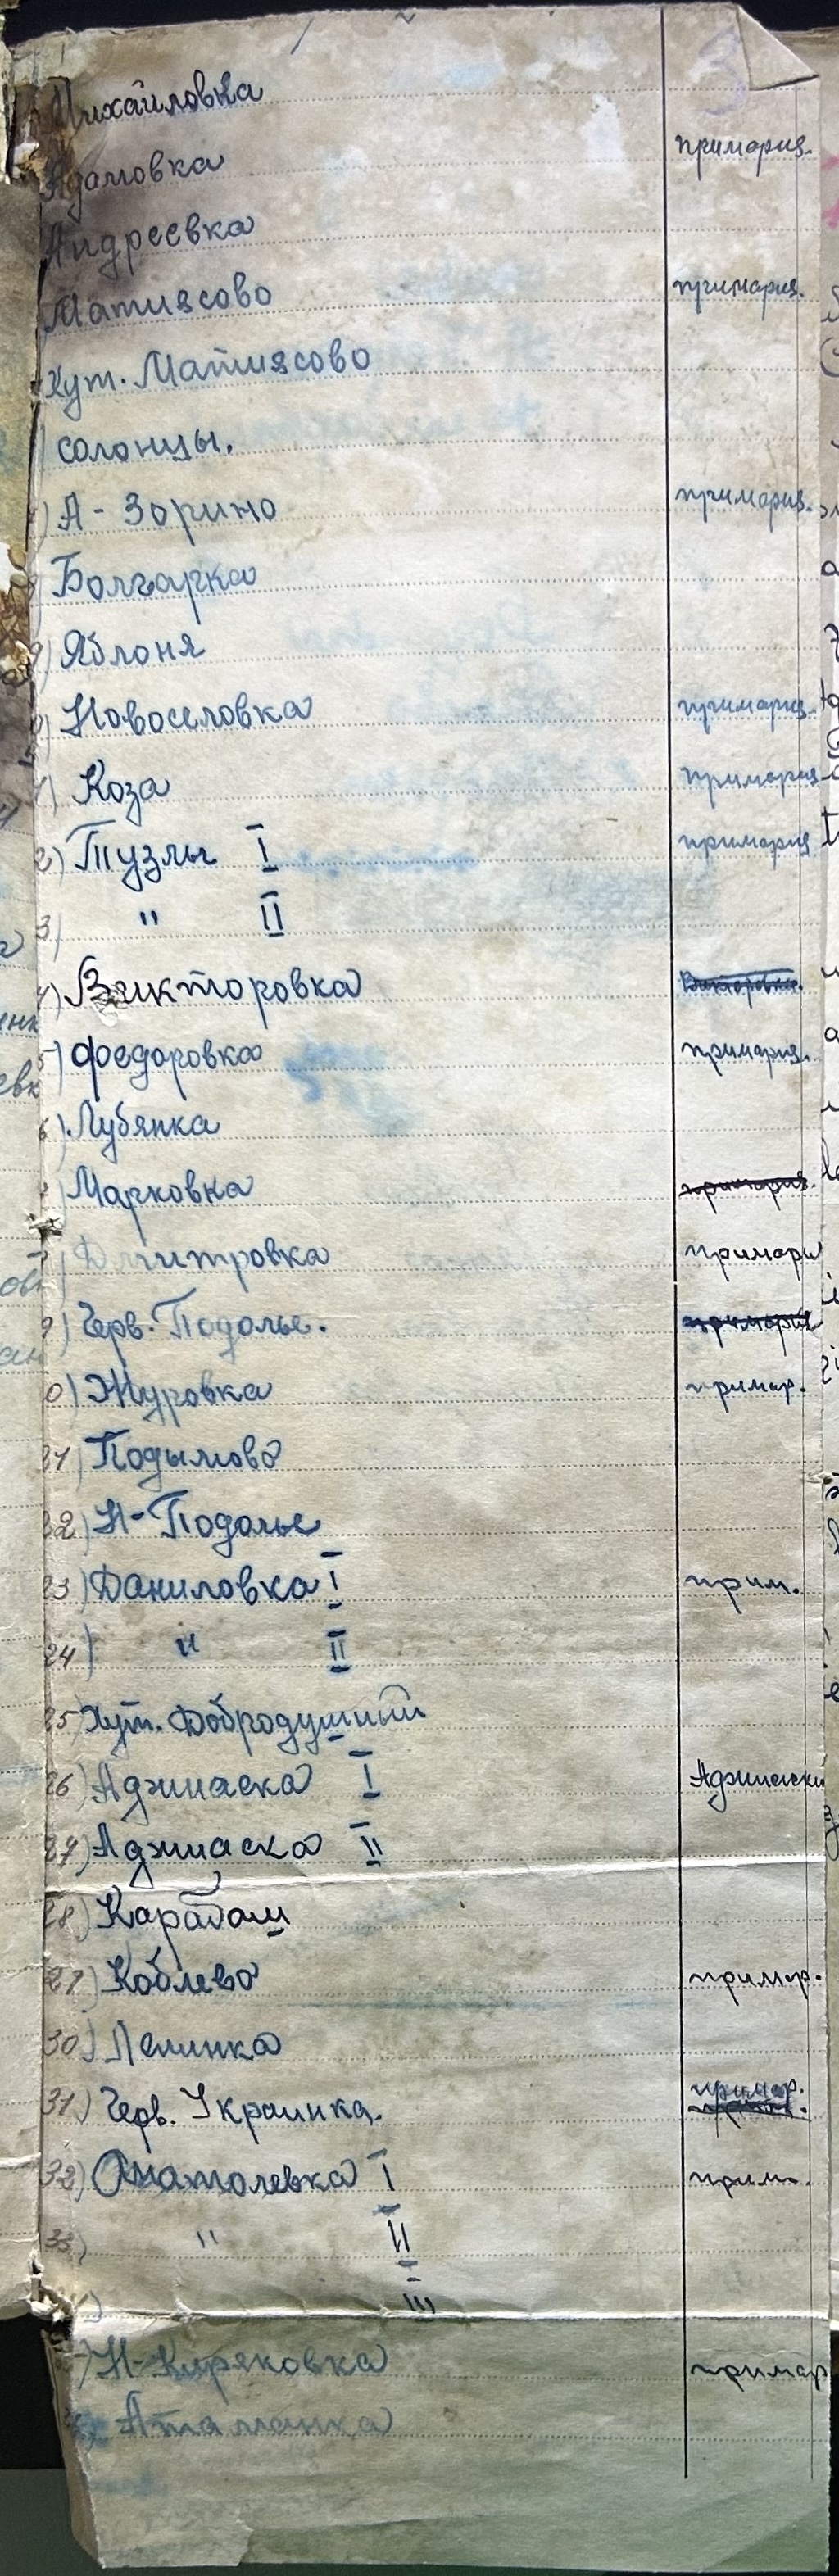 Михайловка
Адамовка примария.
Андреевка
Матиясово примария.
Хут. Матиясово
) Солонцы.
) А - Зорино примария.
Болгарка
9) Яблоня
0) Новоселовка примария.
1) Коза примария
2) Тузлы I примария
3) " II
4) Викторовка Викторовка.
5) Федоровка примария.
6) Лубянка
Марковка примария.
Дмитровка примари
9) Черв. Подолье. примария
0) Журовка примар.
21) Подымово
22) Н-Подолье
23) Даниловка I прим.
24) " II
25) Хут. Добродушный
26) Аджиаска I Аджиаски
27) Аджиаска II
28) Карабаш
29) Коблево примар.
30) Ленинка
31) Черв. Украинка. примар.
32) Анатолевка I прим.
33) " II
III
) Н-Киряковка примар
Атаманка